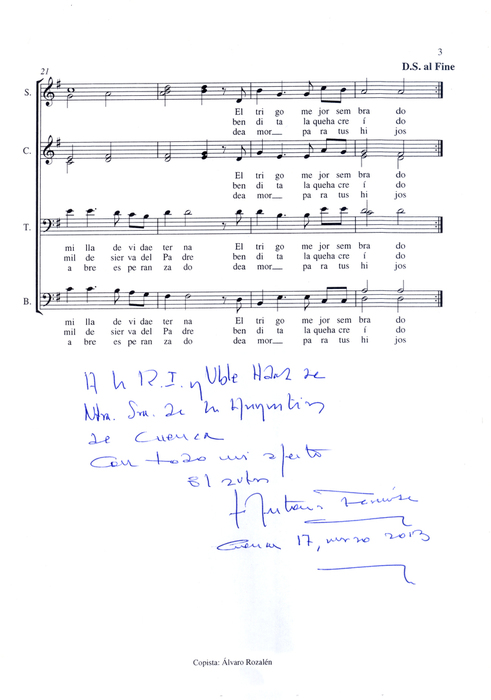 3
D.S. al Fine
21
S.
El tri go me jor sem bra do
ben di ta la queha cre í do
dea mor__ pa ra tus hi jos
C.
El tri go me jor sem bra do
ben di ta la queha cre í do
dea mor__ pa ra tus hi jos
T.
mi lla de vi dae ter na El tri go me jor sem bra do
mil de sier va del Pa dre ben di ta la queha cre í do
a bre es pe ran za do dea mor__ pa ra tus hi jos
B.
mi lla de vi dae ter na El tri go me jor sem bra do
mil de sier va del Pa dre ben di ta la queha cre í do
a bre es pe ran za do dea mor__ pa ra tus hi jos
A la R.I. y Vble Hdad de
Ntra. Sra. de las Angustias
de Cuenca
Con todo mi afecto
El autor
Antonio
Cuenca 17, marzo 2013
Copista: Álvaro Rozalén